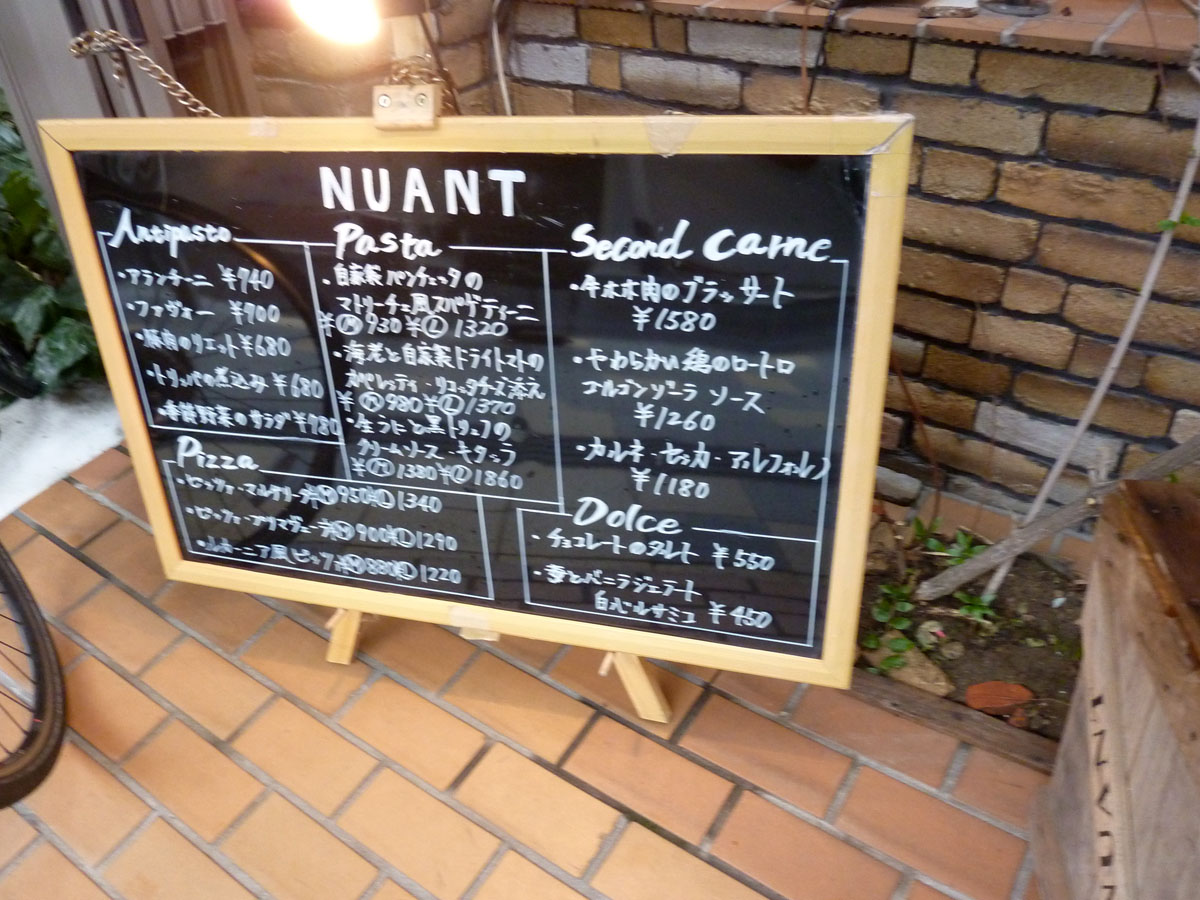 NUANT
Antipasto
・アランチーニ ¥940
・ファヴォー ¥900
・豚肉のリエット ¥680
・トリッパの煮込み ¥680
・季節野菜のサラダ ¥980
Pizza
・ピッツァ・マルゲリータ Ⓜ950 Ⓛ1340
・ピッツァ・プリマヴェーラ Ⓜ900 Ⓛ1290
風ピッツァ Ⓜ880 Ⓛ1220
Pasta
・自家製パンチェッタの
マトリーチェ風スパゲティーニ
¥Ⓜ930 ¥Ⓛ1320
・海老と自家製ドライトマトの
リコッタチーズ添え
¥Ⓜ980 ¥Ⓛ1370
・生うにと黒トリュフの
クリームソース・キタッラ
¥Ⓜ1380 ¥Ⓛ1860
Second Carne
・牛ホホ肉のブラッサート
¥1580
・やわらかい鶏のロートロ
ゴルゴンゾーラ ソース
¥1260
・カルネ・セッカ・アルフォルノ
¥1180
Dolce
・チョコレートのタルト ¥550
・苺とバニラジェラート
白バルサミコ ¥450